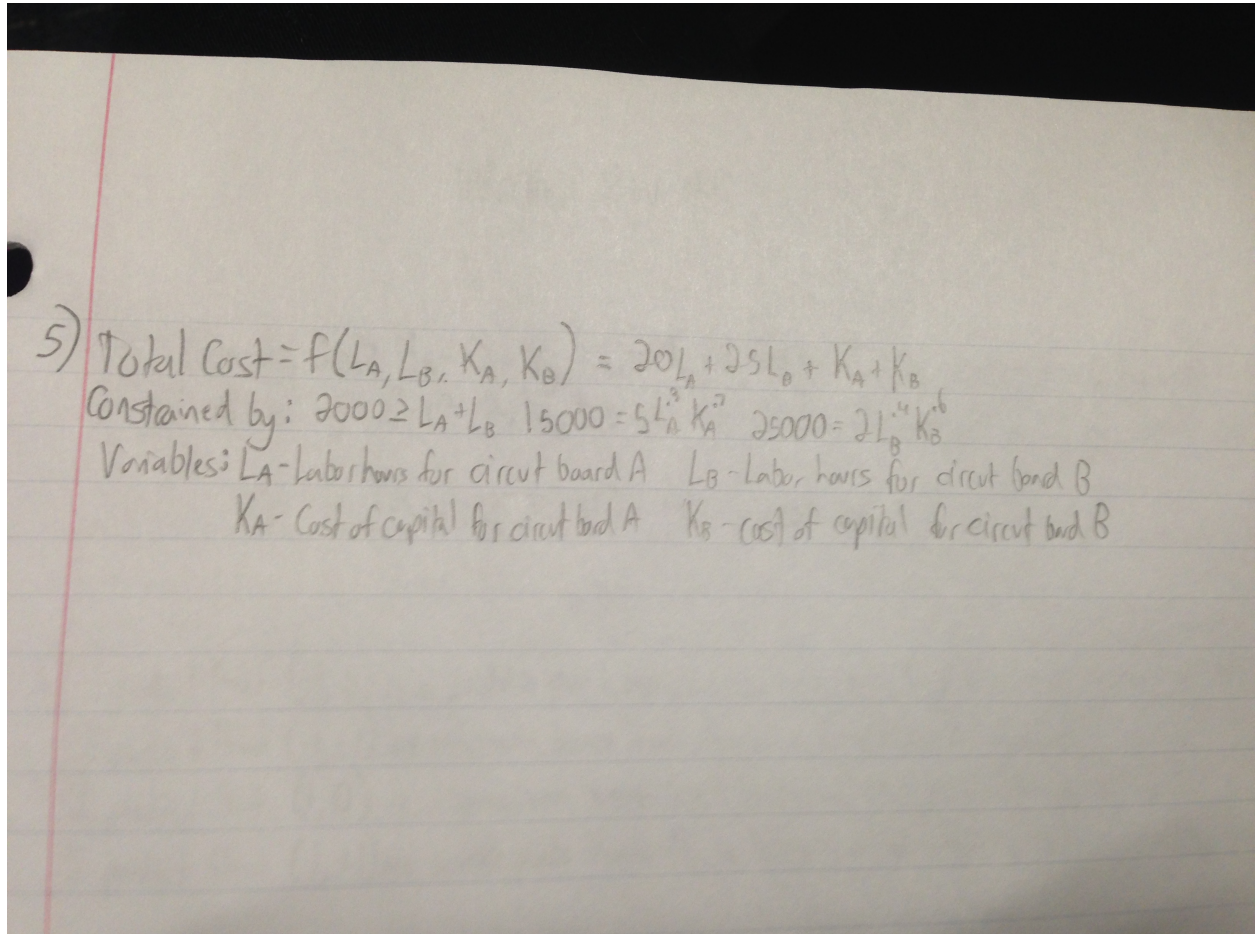 5) Total Cost = f(LA, LB, KA, KB) = 20LA + 25LB + KA + KB
Constrained by: 2000 ≥ LA + LB 15000 = 5LA^.3 KA^.7 25000 = 2LB^.4 KB^.6
Variables: LA - Labor hours for circut board A LB - Labor hours for circut bord B
KA - Cost of capital for circut bord A KB - cost of capital for circut bord B